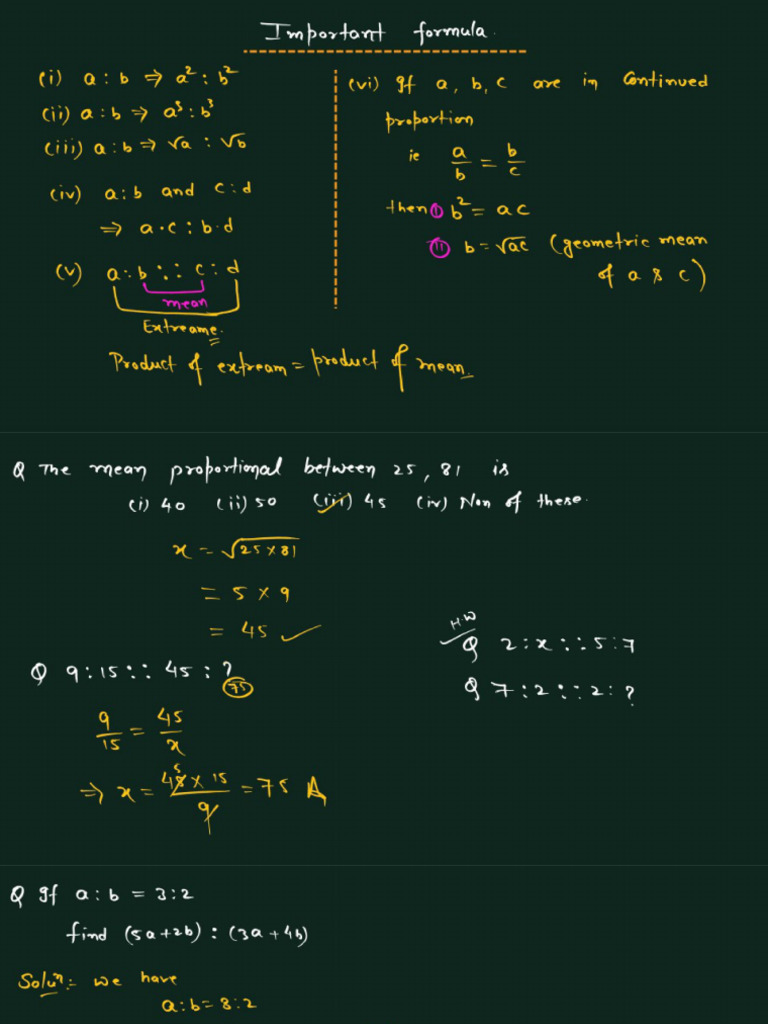 Important formula.
(i) a : b ⇒ a² : b²
(ii) a : b ⇒ a³ : b³
(iii) a : b ⇒ √a : √b
(iv) a : b and c : d
⇒ a·c : b·d
(v) a : b :: c : d
mean
Extreame.
Product of extream = product of mean.
(vi) If a, b, c are in Continued
proportion
ie a/b = b/c
then (i) b² = ac
(ii) b = √ac (geometric mean
of a & c)
Q The mean proportional between 25, 81 is
(i) 40 (ii) 50 (iii) 45 (iv) Non of these.
x = √25 × 81
= 5 × 9
= 45 ✓
Q 9 : 15 :: 45 : ?
75
9/15 = 45/x
⇒ x = 45 × 15 / 9 = 75 A
5
H.W
Q 2 : x :: 5 : 7
Q 7 : 2 :: 2 : ?
Q If a : b = 3 : 2
find (5a + 2b) : (3a + 4b)
Soluⁿ:- we have
a : b = 3 : 2